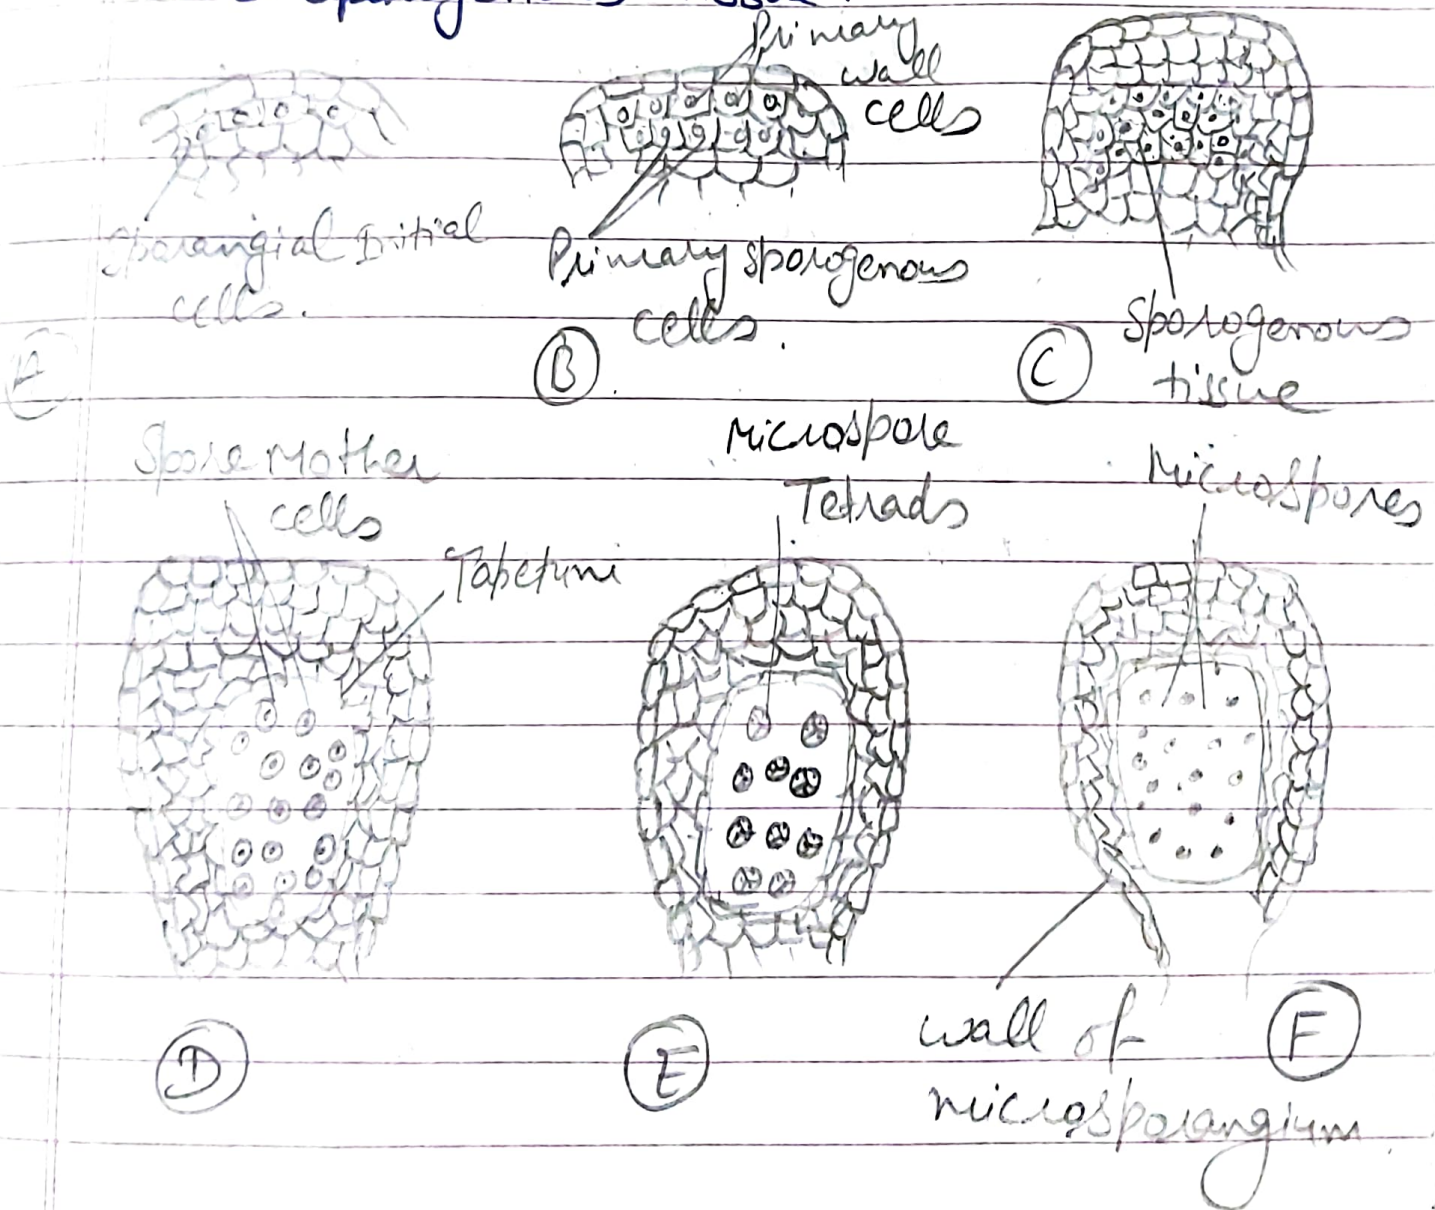 sporogenous tissue.
Primary
wall
cells
Sporangial Initial
cells.
Primary sporogenous
cells.
Sporogenous
tissue
A
B
C
Spore Mother
cells
Tapetum
Microspore
Tetrads
Microspores
wall of
microsporangium
D
E
F